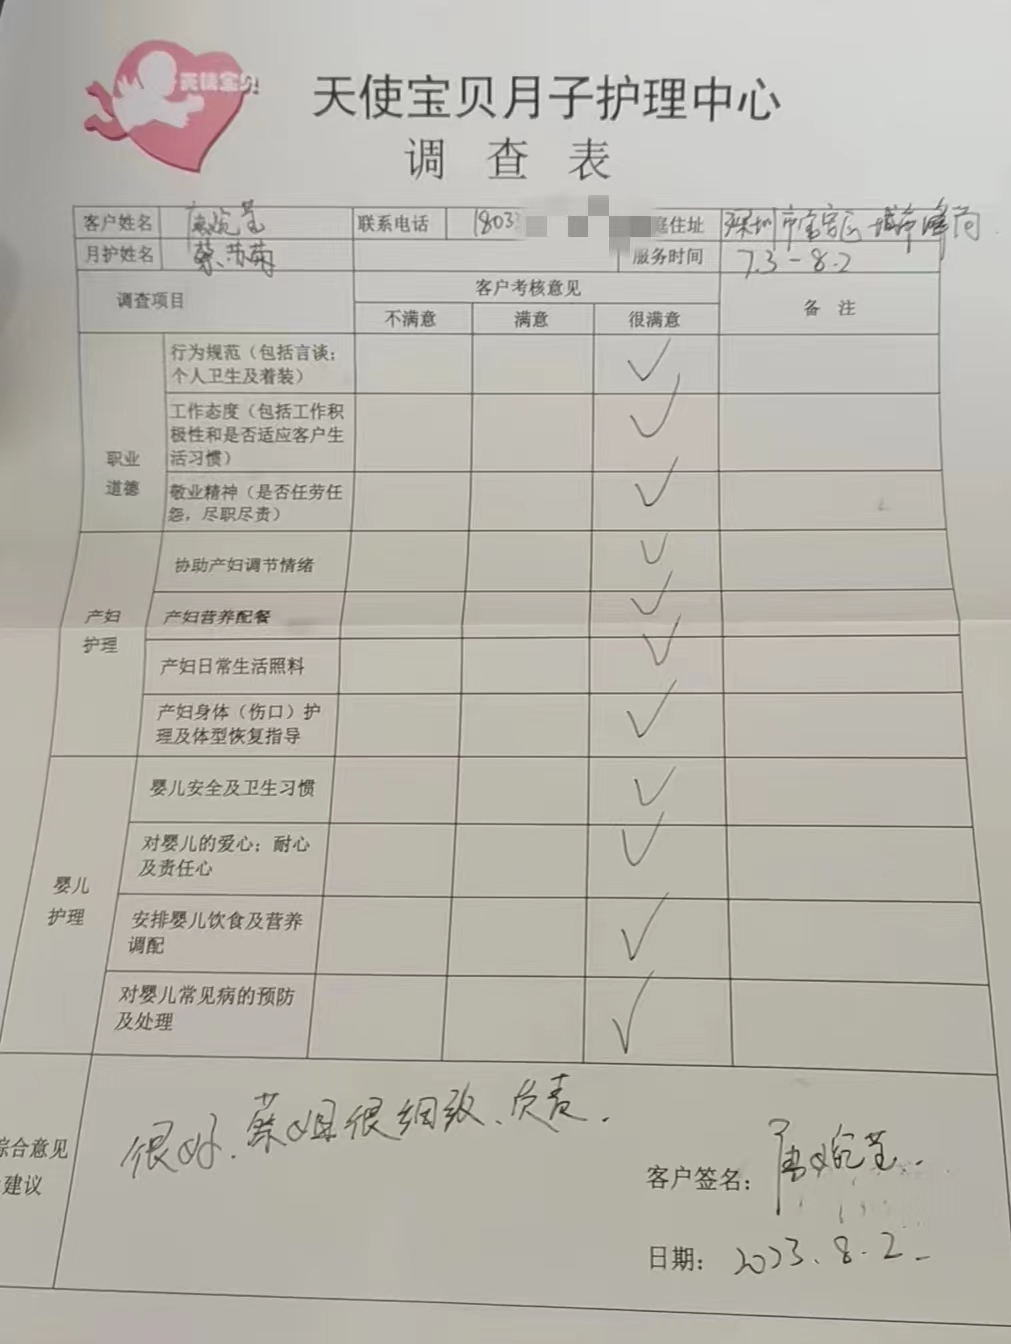 天使宝贝
天使宝贝月子护理中心
调查表
客户姓名 联系电话 1803 庭住址 深圳市宝安区
月护姓名 蔡苏菊 服务时间 7.3-8.2
调查项目 客户考核意见 备 注
不满意 满意 很满意
职业道德
行为规范（包括言谈；
个人卫生及着装） ✓
工作态度（包括工作积
极性和是否适应客户生
活习惯） ✓
敬业精神（是否任劳任
怨，尽职尽责） ✓
产妇护理
协助产妇调节情绪 ✓
产妇营养配餐 ✓
产妇日常生活照料 ✓
产妇身体（伤口）护
理及体型恢复指导 ✓
婴儿护理
婴儿安全及卫生习惯 ✓
对婴儿的爱心；耐心
及责任心 ✓
安排婴儿饮食及营养
调配 ✓
对婴儿常见病的预防
及处理 ✓
综合意见
建议
很好.蔡姐很细致、负责.
客户签名：
日期： 2023.8.2